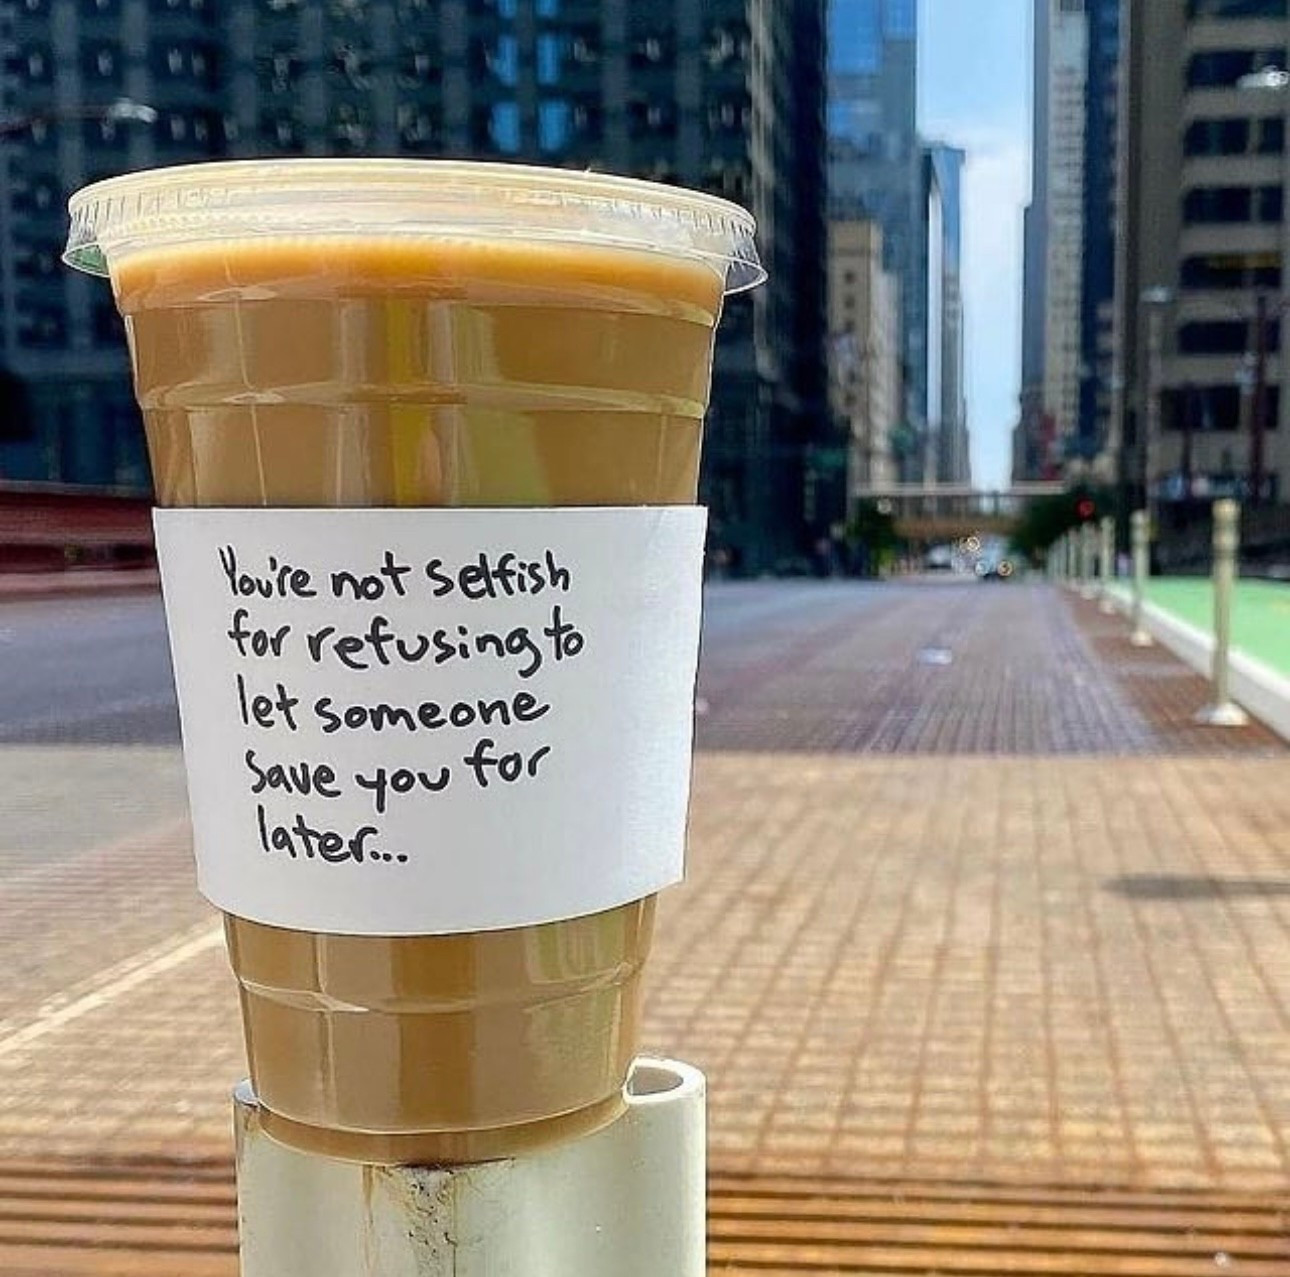 You're not selfish
for refusing to
let someone
save you for
later...